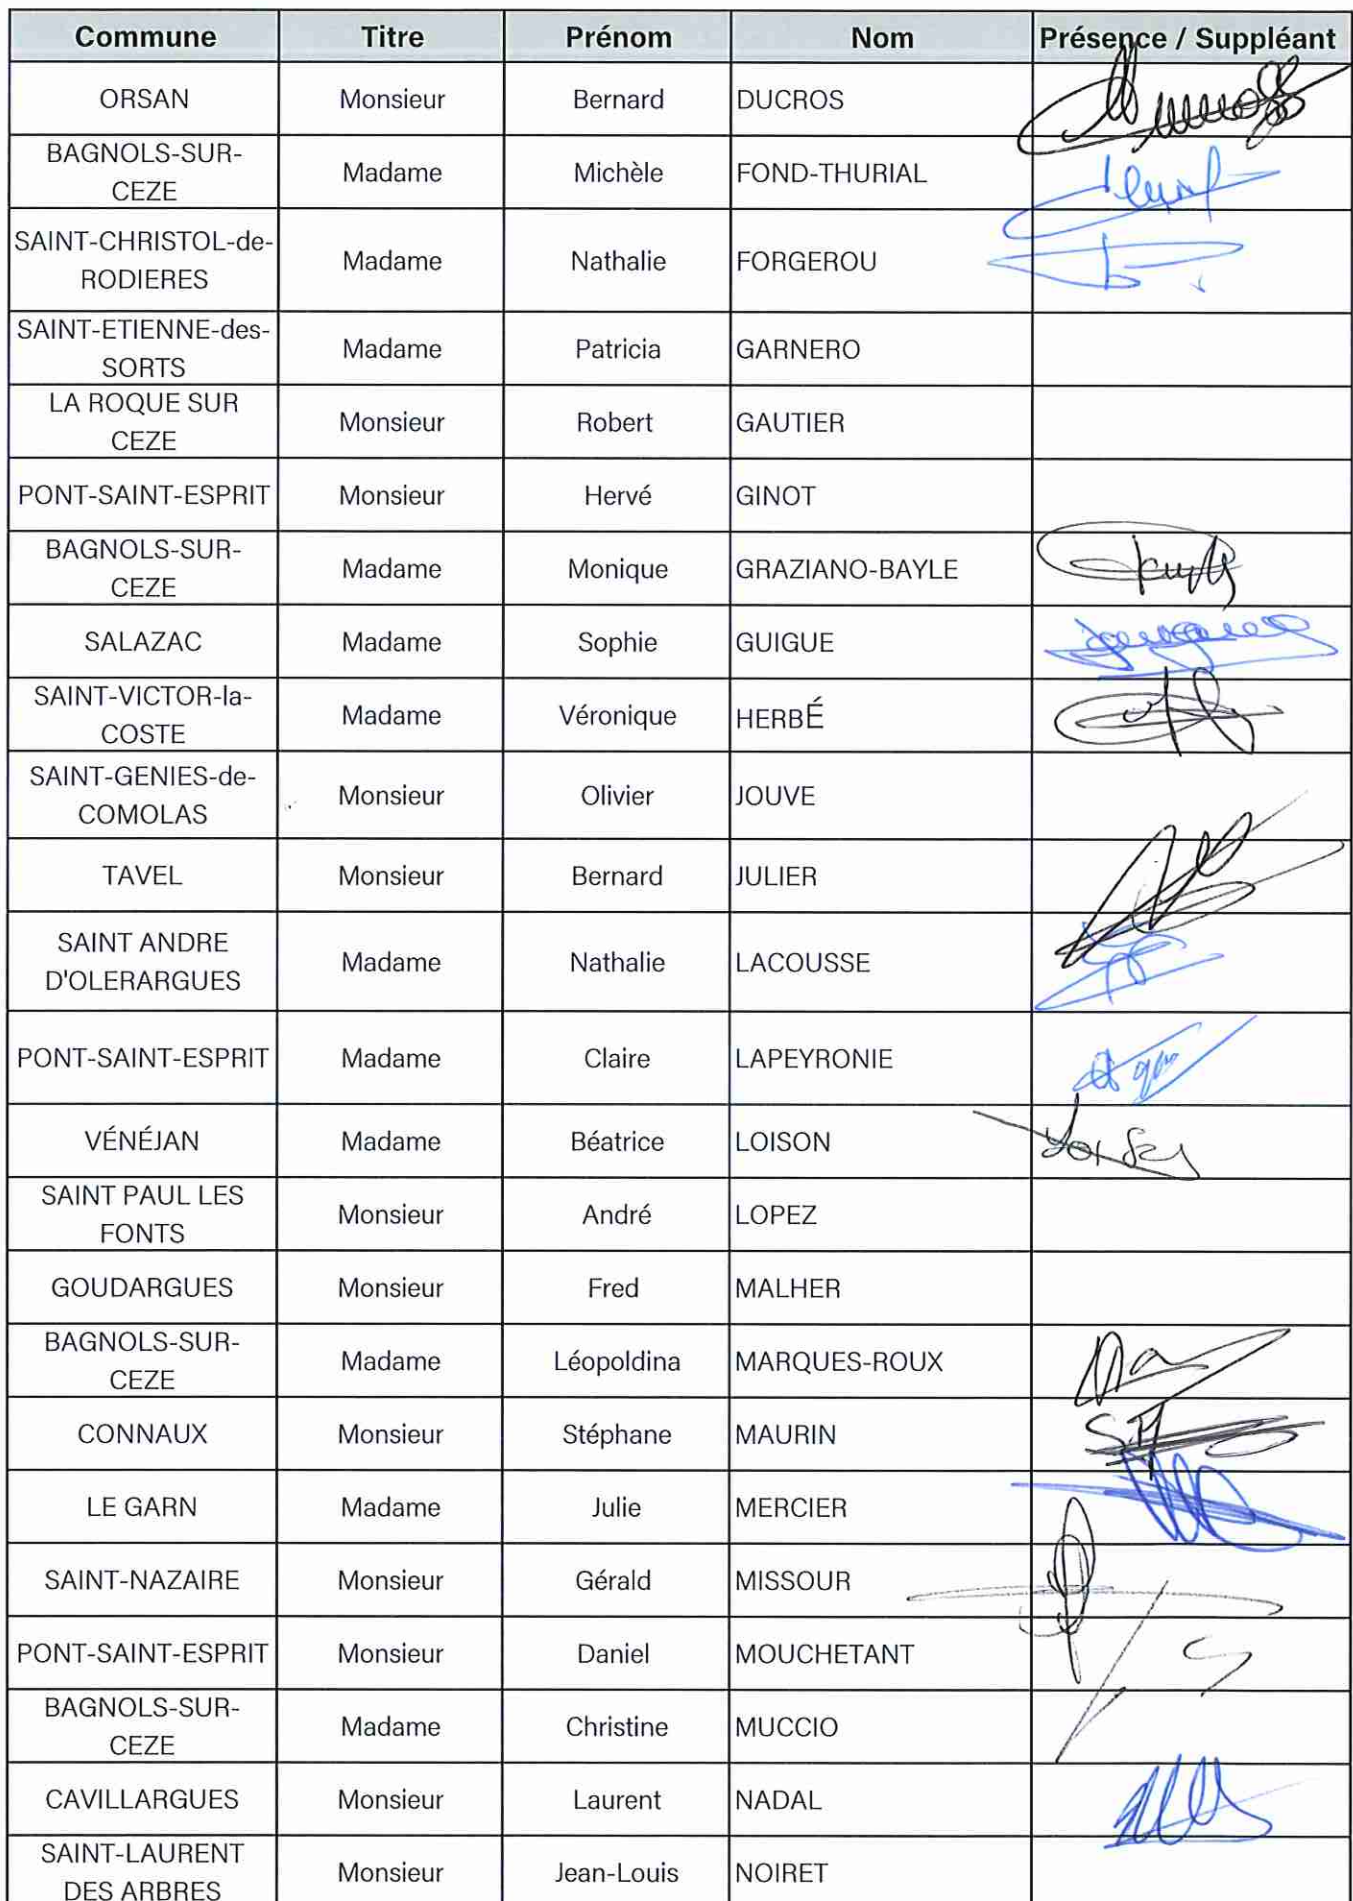 Commune Titre Prénom Nom Présence / Suppléant
ORSAN Monsieur Bernard DUCROS
BAGNOLS-SUR-
CEZE Madame Michèle FOND-THURIAL
SAINT-CHRISTOL-de-
RODIERES Madame Nathalie FORGEROU
SAINT-ETIENNE-des-
SORTS Madame Patricia GARNERO
LA ROQUE SUR
CEZE Monsieur Robert GAUTIER
PONT-SAINT-ESPRIT Monsieur Hervé GINOT
BAGNOLS-SUR-
CEZE Madame Monique GRAZIANO-BAYLE
SALAZAC Madame Sophie GUIGUE
SAINT-VICTOR-la-
COSTE Madame Véronique HERBÉ
SAINT-GENIES-de-
COMOLAS Monsieur Olivier JOUVE
TAVEL Monsieur Bernard JULIER
SAINT ANDRE
D'OLERARGUES Madame Nathalie LACOUSSE
PONT-SAINT-ESPRIT Madame Claire LAPEYRONIE
VÉNÉJAN Madame Béatrice LOISON
SAINT PAUL LES
FONTS Monsieur André LOPEZ
GOUDARGUES Monsieur Fred MALHER
BAGNOLS-SUR-
CEZE Madame Léopoldina MARQUES-ROUX
CONNAUX Monsieur Stéphane MAURIN
LE GARN Madame Julie MERCIER
SAINT-NAZAIRE Monsieur Gérald MISSOUR
PONT-SAINT-ESPRIT Monsieur Daniel MOUCHETANT
BAGNOLS-SUR-
CEZE Madame Christine MUCCIO
CAVILLARGUES Monsieur Laurent NADAL
SAINT-LAURENT
DES ARBRES Monsieur Jean-Louis NOIRET